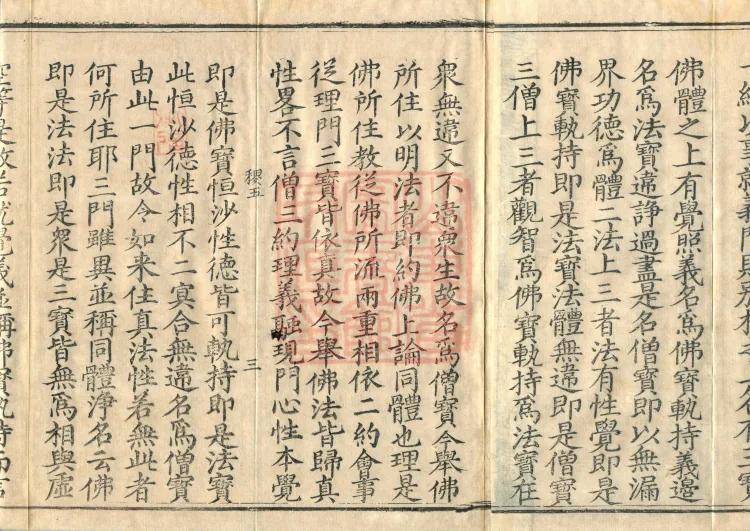 佛體之上有覺照義名爲佛寶軌持義邊
名爲法寶違諍過盡是名僧寶即以無漏
界功德爲體二法上三者法有性覺即是
佛寶軌持即是法寶法體無違即是僧寶
三僧上三者觀智爲佛寶軌持爲法寶在
衆無違又不違衆生故名爲僧寶今舉佛
所住以明法者即約佛上論同體也理是
佛所住教從佛所流兩重相依二約會事
從理門三寶皆依真故今舉佛法皆歸真
性畧不言僧三約理義融現門心性本覺
稷五
三
即是佛寶恒沙性德皆可軌持即是法寶
此恒沙德性相不二冥合無違名爲僧寶
由此一門故今如来住真法性若無此者
何所住耶三門雖異並稱同體淨名云佛
即是法法即是衆是三寶皆無爲相與虛